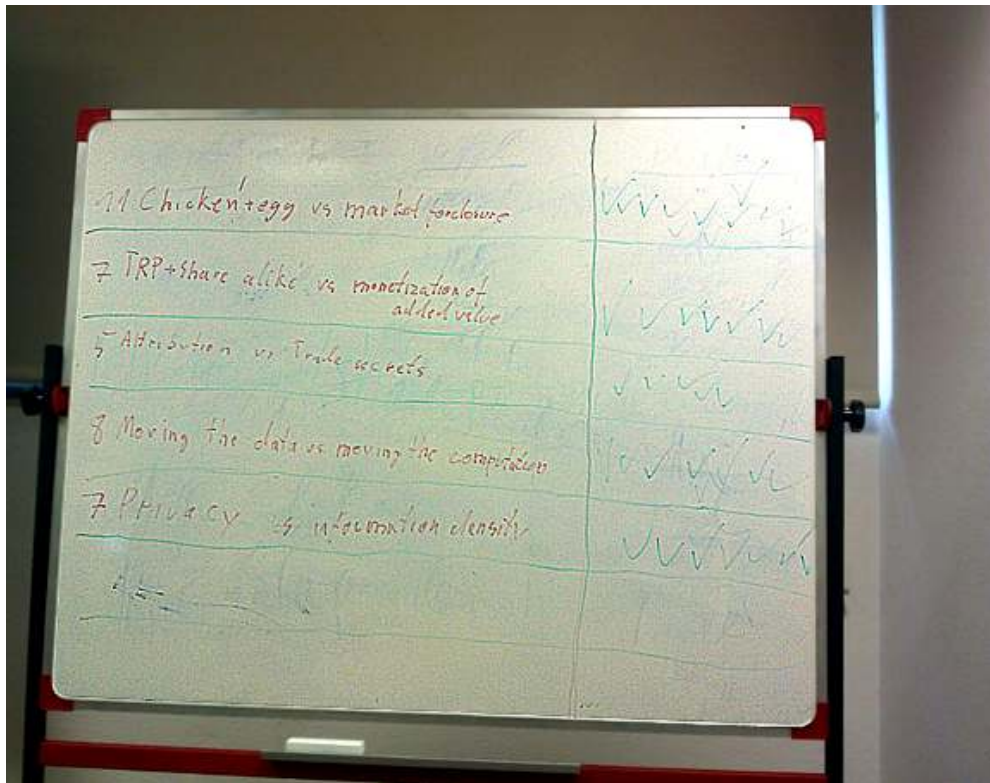 11 Chicken+egg vs market forclosure
7 TRP+Share alike vs monetization of
added value
5 Attribution vs Trade secrets
8 Moving the data vs moving the computation
7 Privacy vs information density